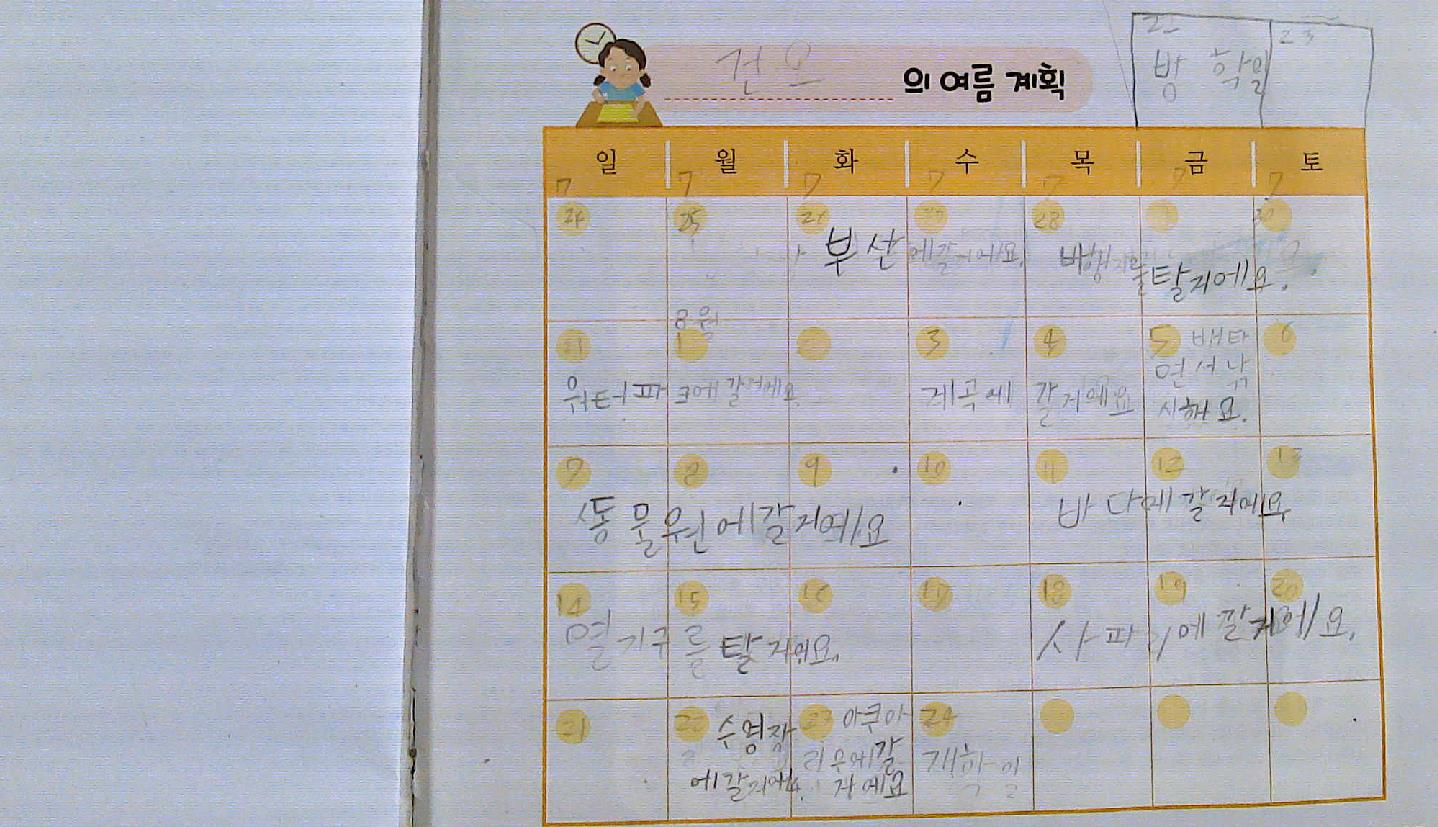 22 23
방 학일
건오의 여름 계획
일 월 화 수 목 금 토
7 7 7 7 7 7 7
24 25 26 27 28
부산에갈거에요. 비행기를탈거에요.
8월
31 1 3 4 5 6
워터파크에갈거에요 계곡에 갈거에요 배타
면서낚
시해요.
7 8 9 10 11 12 13
동물원에갈거에요 바다에갈거에요
14 15 16 17 18 19 20
열기구를탈거에요. 사파리에갈거에요.
21 22 수영장 23 아쿠아 24
에갈거에요. 리움에갈 개학일
거에요